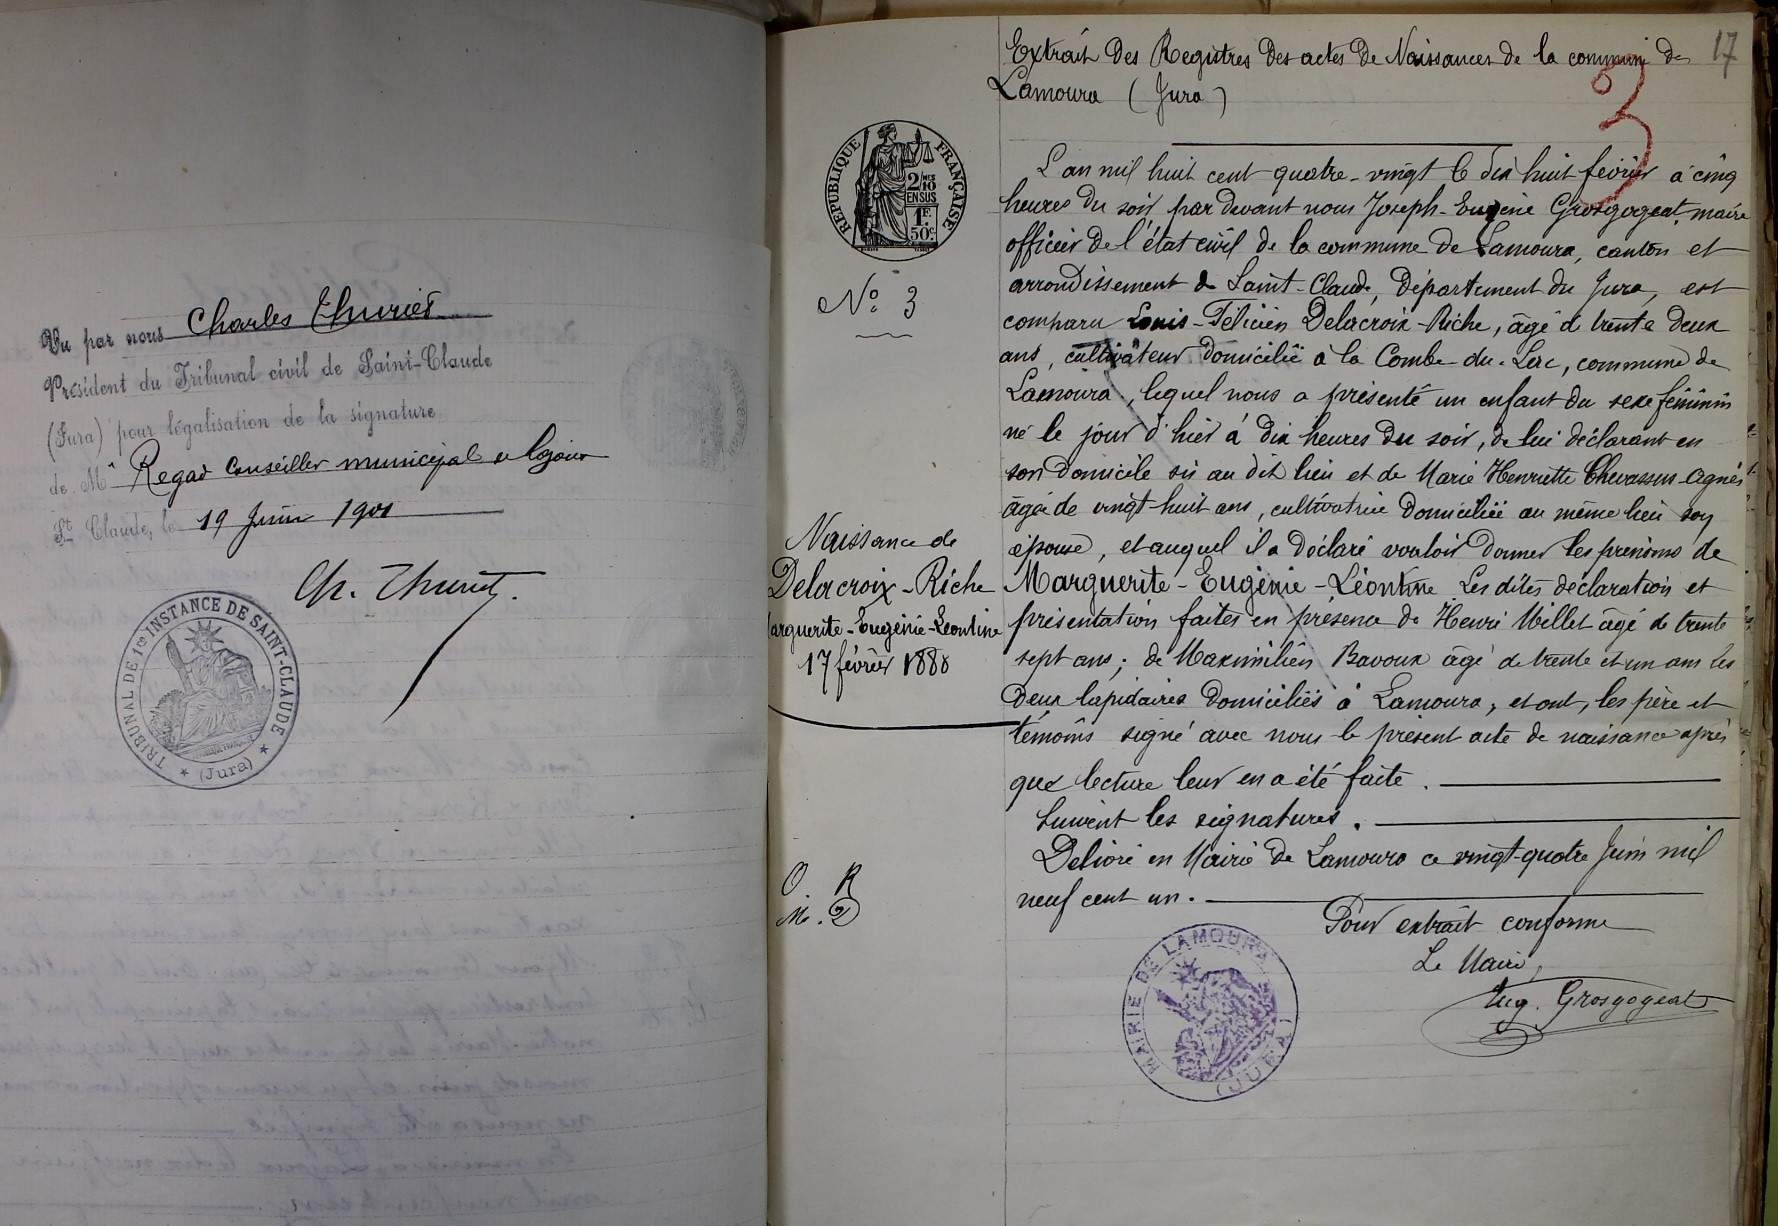 Vu par nous Charles Thuriet
Président du Tribunal civil de Saint-Claude
(Jura) pour légalisation de la signature
de Mr Regad Conseiller municipal
St Claude, le 19 Juin 1901
Ch. Thuriet.
TRIBUNAL DE 1ère INSTANCE DE SAINT-CLAUDE
(Jura)
17
3
Extrait des Registres des actes de Naissances de la commune de
Lamoura (Jura)
RÉPUBLIQUE FRANÇAISE
2/10MES
EN SUS
1F.
50c.
No 3
L'an mil huit cent quatre-vingt le dix huit février à cinq
heures du soir, par devant nous Joseph-Eugène Grosgogeat, maire
officier de l'état civil de la commune de Lamoura, canton et
arrondissement de Saint-Claude, Département du Jura, est
comparu Louis-Félicien Delacroix-Riche, âgé de trente deux
ans, cultivateur domicilié à la Combe-du-Lac, commune de
Lamoura, lequel nous a présenté un enfant du sexe féminin
né le jour d'hier à dix heures du soir, de lui déclarant en
son domicile sis au dit lieu et de Marie Henriette Chevassus-Agnès
âgée de vingt-huit ans, cultivatrice domiciliée au même lieu son
épouse, et auquel il a déclaré vouloir donner les prénoms de
Marguerite-Eugénie-Léontine. Les dites déclaration et
présentation faites en présence de Henri Millet âgé de trente
sept ans; de Maximilien Bavoux âgé de trente et un ans les
deux lapidaires domiciliés à Lamoura, et ont, les père et
témoins signé avec nous le présent acte de naissance après
que lecture leur en a été faite.
Suivent les signatures.
Délivré en Mairie de Lamoura ce vingt-quatre Juin mil
neuf cent un.
Naissance de
Delacroix-Riche
Marguerite-Eugénie-Léontine
17 février 1880
Pour extrait conforme
Le Maire,
Eug. Grosgogeat
MAIRIE DE LAMOURA
(JURA)